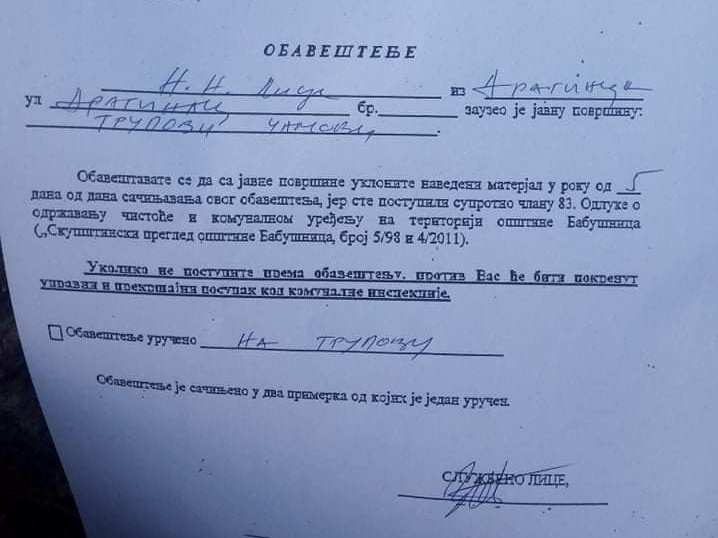 ОБАВЕШТЕЊЕ
Н. Н. Лице из Драгинца
ул Драгинац бр. заузео је јавну површину:
ТРУПОВИ ЧАМОВИ
Обавештавате се да са јавне површине уклоните наведени матерјал у року од 5
дана од дана сачињавања овог обавештења, јер сте поступили супротно члану 83. Одлуке о
одржавању чистоће и комуналном уређењу на територији општине Бабушница
(„Скупштински преглед општине Бабушница, број 5/98 и 4/2011).
Уколико не поступите према обавештењу, против Вас ће бити покренут
управни и прекршајни поступак код комуналне инспекције.
Обавештење уручено НА ТРУПОВИ
Обавештење је сачињено у два примерка од којих је један уручен.
СЛУЖБЕНО ЛИЦЕ,